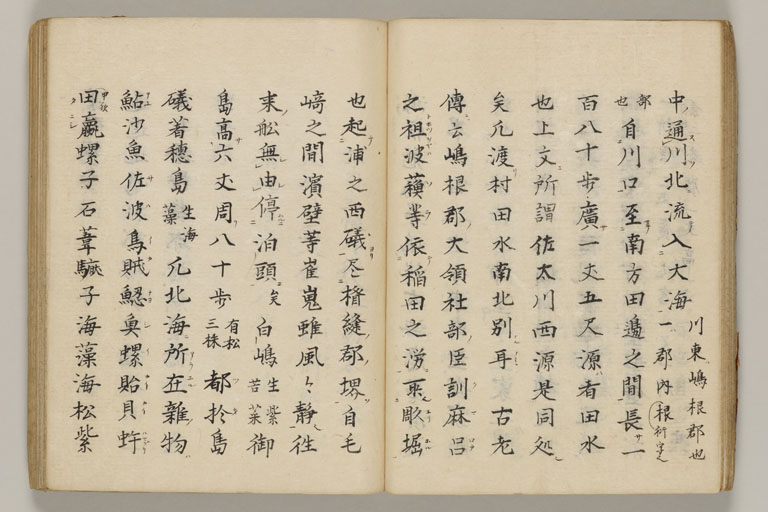 中通川北流入大海川東嶋根郡也一郡内根
部也自川口至南方田邊之間長一
百八十歩廣一丈五尺源者田水
也上文所謂佐太川西源是同処
矣凡渡村田水南北別耳古老
傳云嶋根郡大領社部臣訓麻呂
之祖波蘓等依稲田之澇所彫堀
也起浦之西礒尽楯縫郡堺自毛
﨑之間濱壁等崔嵬雖風々静徃
来舩無由停泊頭矣白嶋生紫苔菜御
島高六丈周八十歩有松三株都於島
礒著穂島生海藻凡北海所在雜物
鮎沙魚佐波烏賊鰒魚螺貽貝蚌
田蠃螺子石葦蠣子海藻海松紫